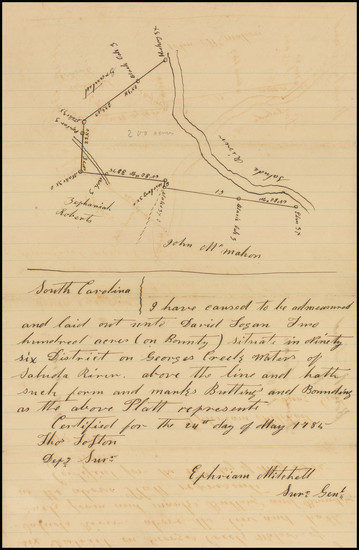 Hickory 3X
Black Oak 3
Granted
Saluda
River
200 acres
Zephaniah
Roberts
Black Oak 3
Elm 3X
John McMahon
South Carolina
I have caused to be admeasured
and laid out unto David Logan Two
hundred acres (on Bounty) situate in ninety
six District on Georges Creek Waters of
Saluda River. above the line and hath
such form and marks Buttings and Bounding
as the above Platt represents
Certified for the 24th day of May 1784
Thos Lofton
Depy Surr.
Ephriam Mitchell
Surr. Genl.